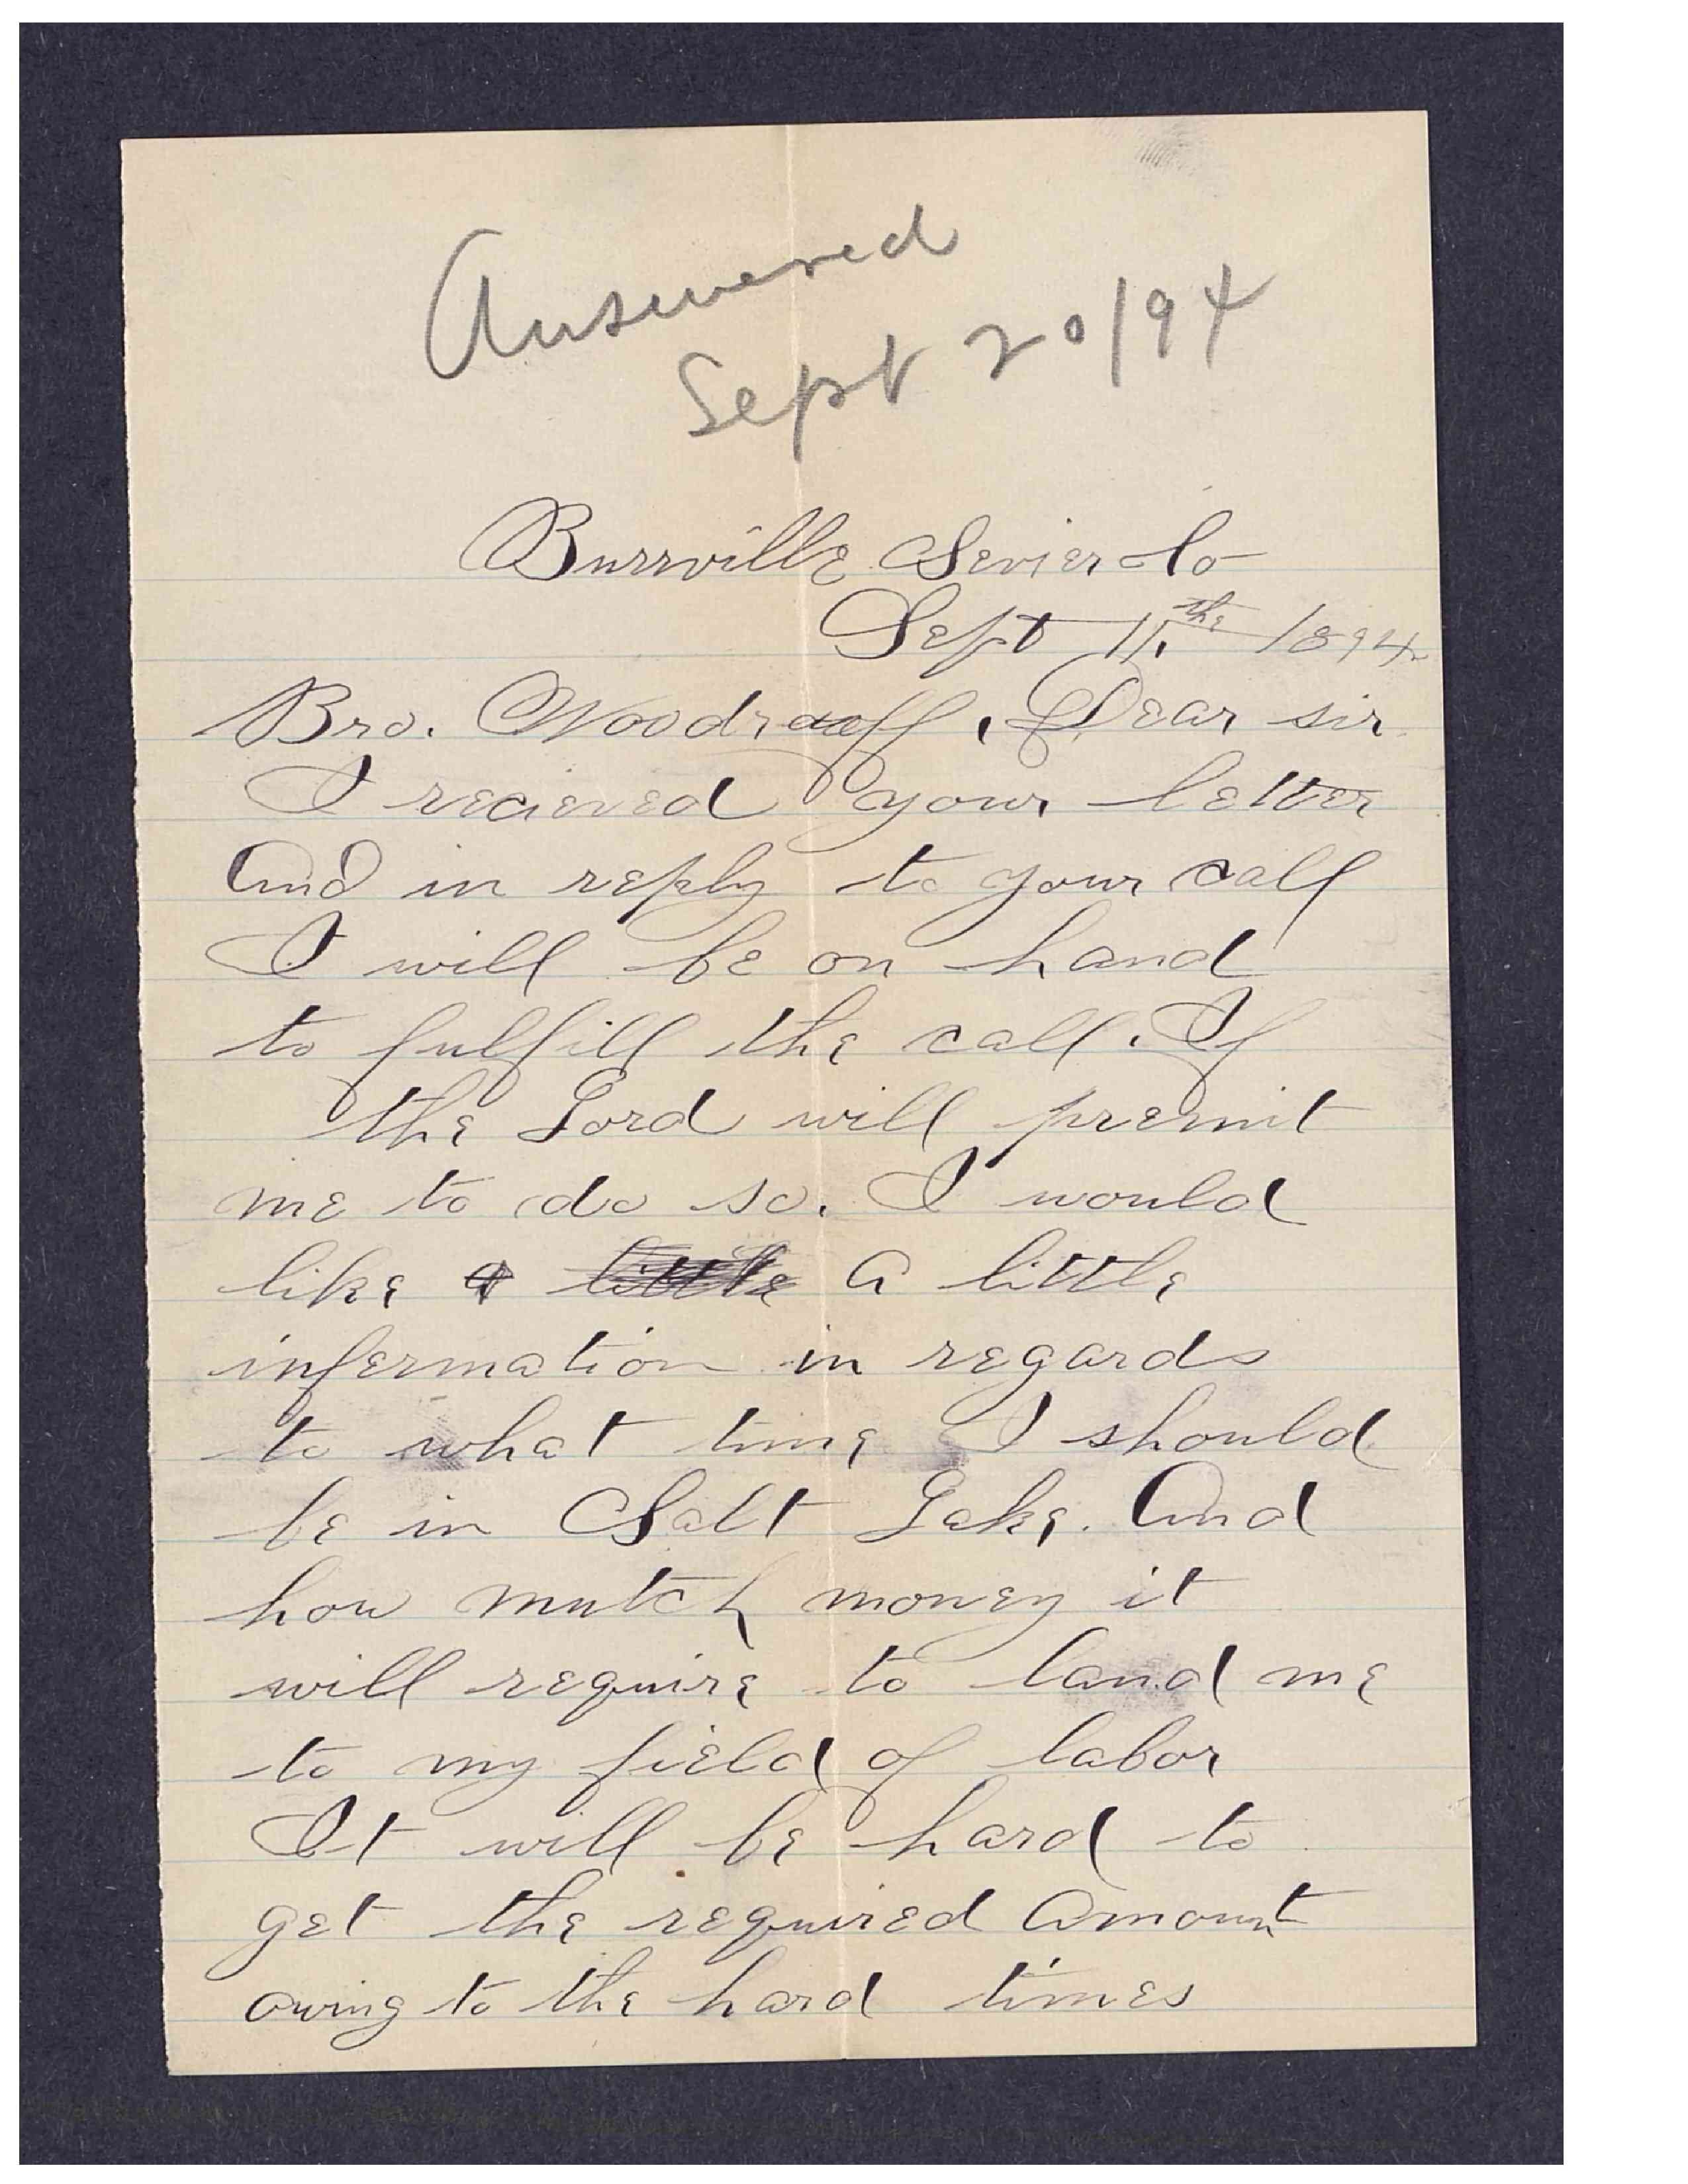 Answered
Sept 20/94
Burrville Sevier Co
Sept 11th 1894
Bro. Woodruff, Dear sir
I recieved your letter
And in reply to your call
I will be on hand
to fulfill the call. If
the Lord will premit
me to do so. I would
like a little A little
infermation in regards
to what time I should
be in Salt Lake. And
how mutch money it
will require to land me
to my field of labor
It will be hard to
get the required Amount
owing to the hard times